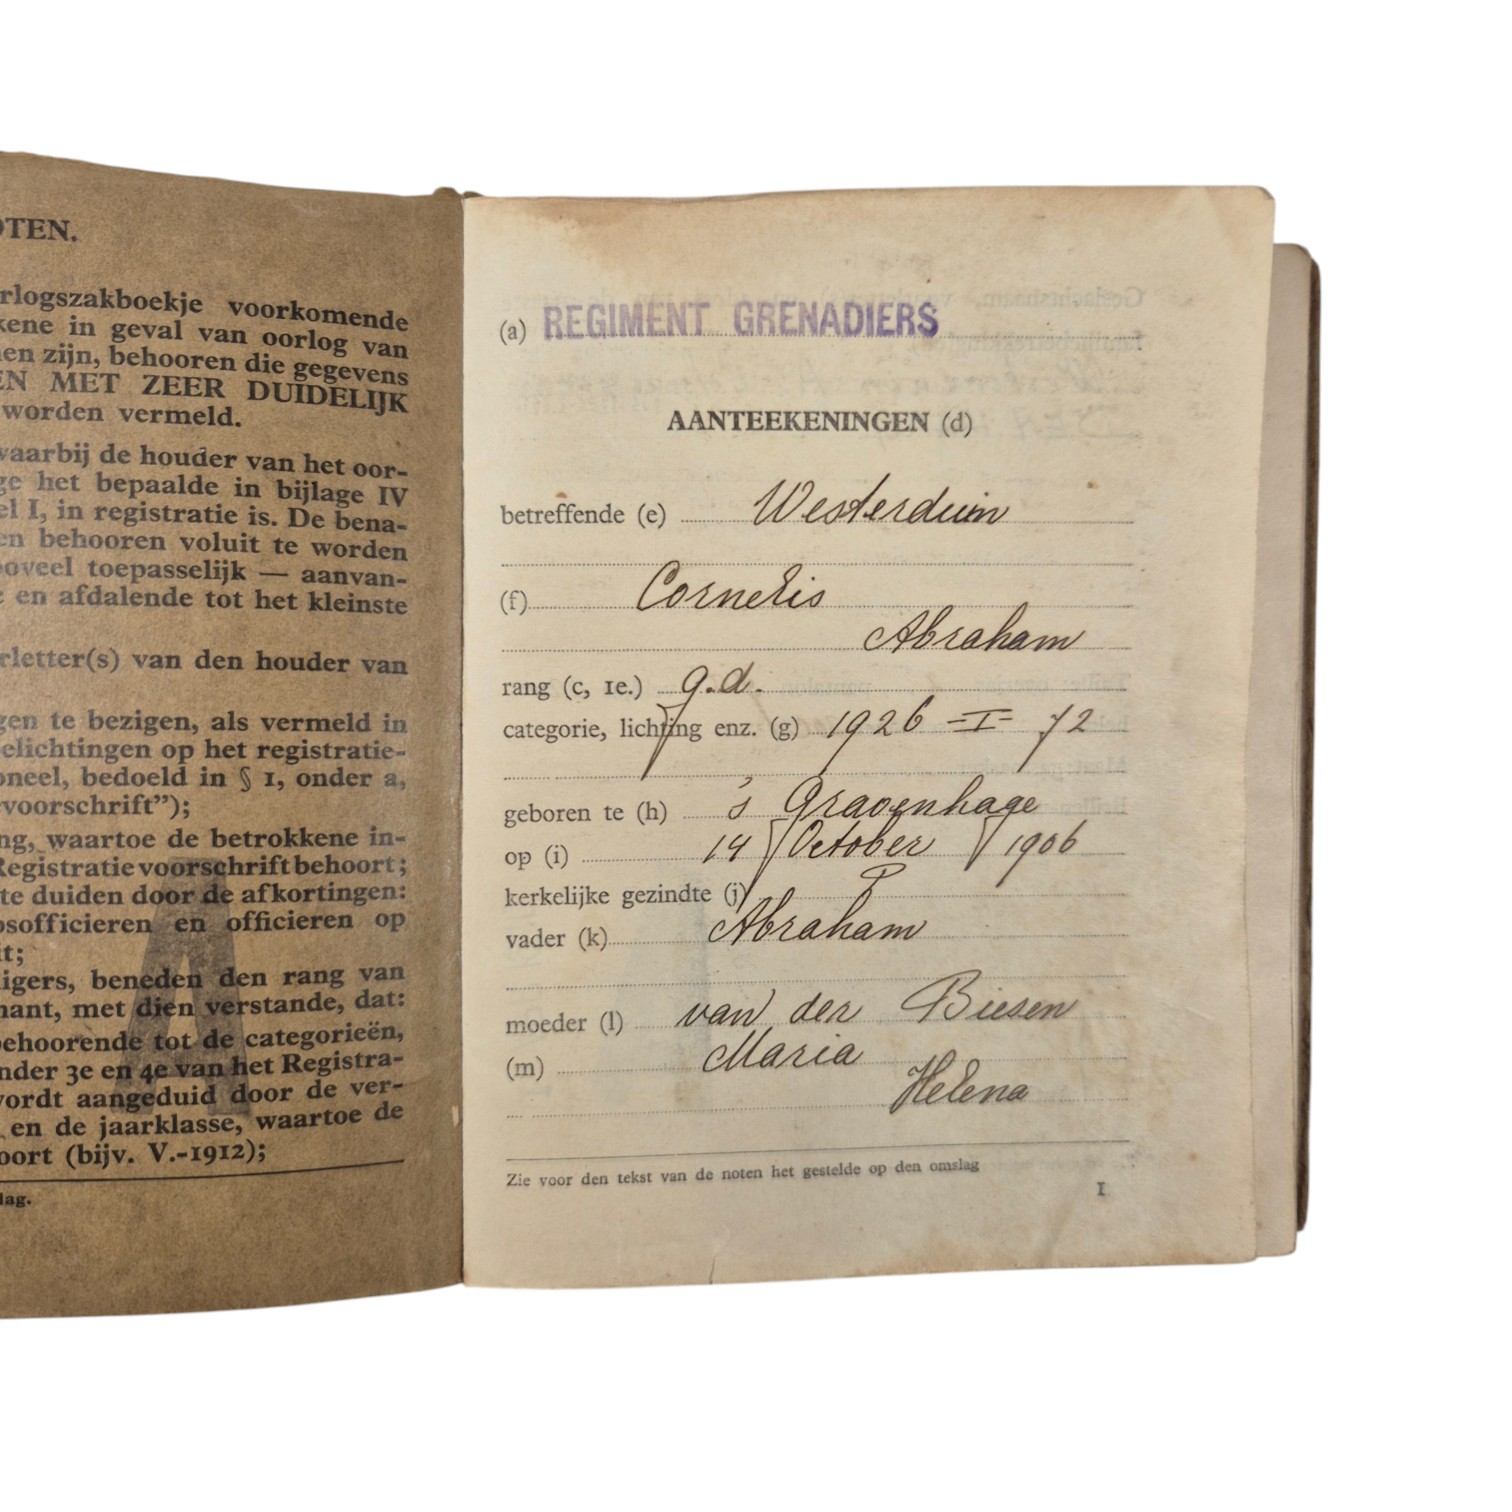 OTEN.
rlogszakboekje voorkomende
kene in geval van oorlog van
nen zijn, behooren die gegevens
EN MET ZEER DUIDELIJK
worden vermeld.
waarbij de houder van het oor-
ge het bepaalde in bijlage IV
el I, in registratie is. De bena-
en behooren voluit te worden
oveel toepasselijk — aanvan-
e en afdalende tot het kleinste
rletter(s) van den houder van
gen te bezigen, als vermeld in
elichtingen op het registratie-
oneel, bedoeld in § 1, onder a,
voorschrift");
ng, waartoe de betrokkene in-
Registratievoorschrift behoort;
te duiden door de afkortingen:
osofficieren en officieren op
it;
igers, beneden den rang van
nant, met dien verstande, dat:
behoorende tot de categorieën,
nder 3e en 4e van het Registra-
wordt aangeduid door de ver-
en de jaarklasse, waartoe de
oort (bijv. V.-1912);
lag.
(a) REGIMENT GRENADIERS
AANTEEKENINGEN (d)
betreffende (e) Westerduin
(f) Cornelis
Abraham
rang (c, 1e.) g.d.
categorie, lichting enz. (g) 1926 =I= 72
geboren te (h) 's Gravenhage
op (i) 14 October 1906
kerkelijke gezindte (j) P
vader (k) Abraham
moeder (l) van der Biesen
(m) Maria
Helena
Zie voor den tekst van de noten het gestelde op den omslag
1